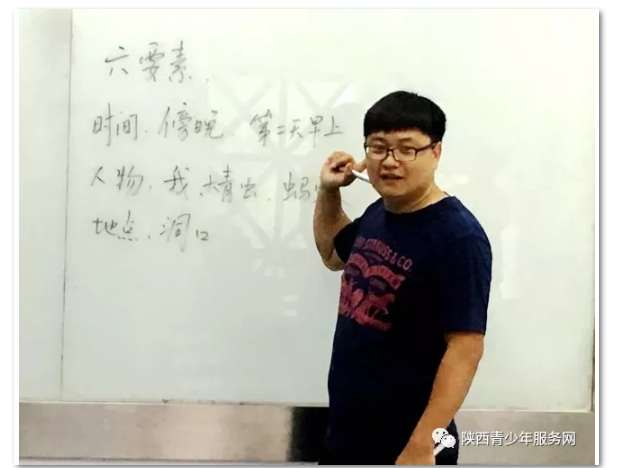 六要素,
时间. 傍晚. 第二天早上
人物. 我. 大青虫. 蚂
地点. 洞口
STRAUSS & CO.
陕西青少年服务网